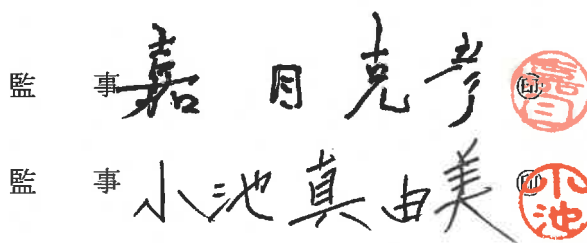 監事 嘉目克彦 ㊞ 嘉目
監事 小池真由美 ㊞ 小池